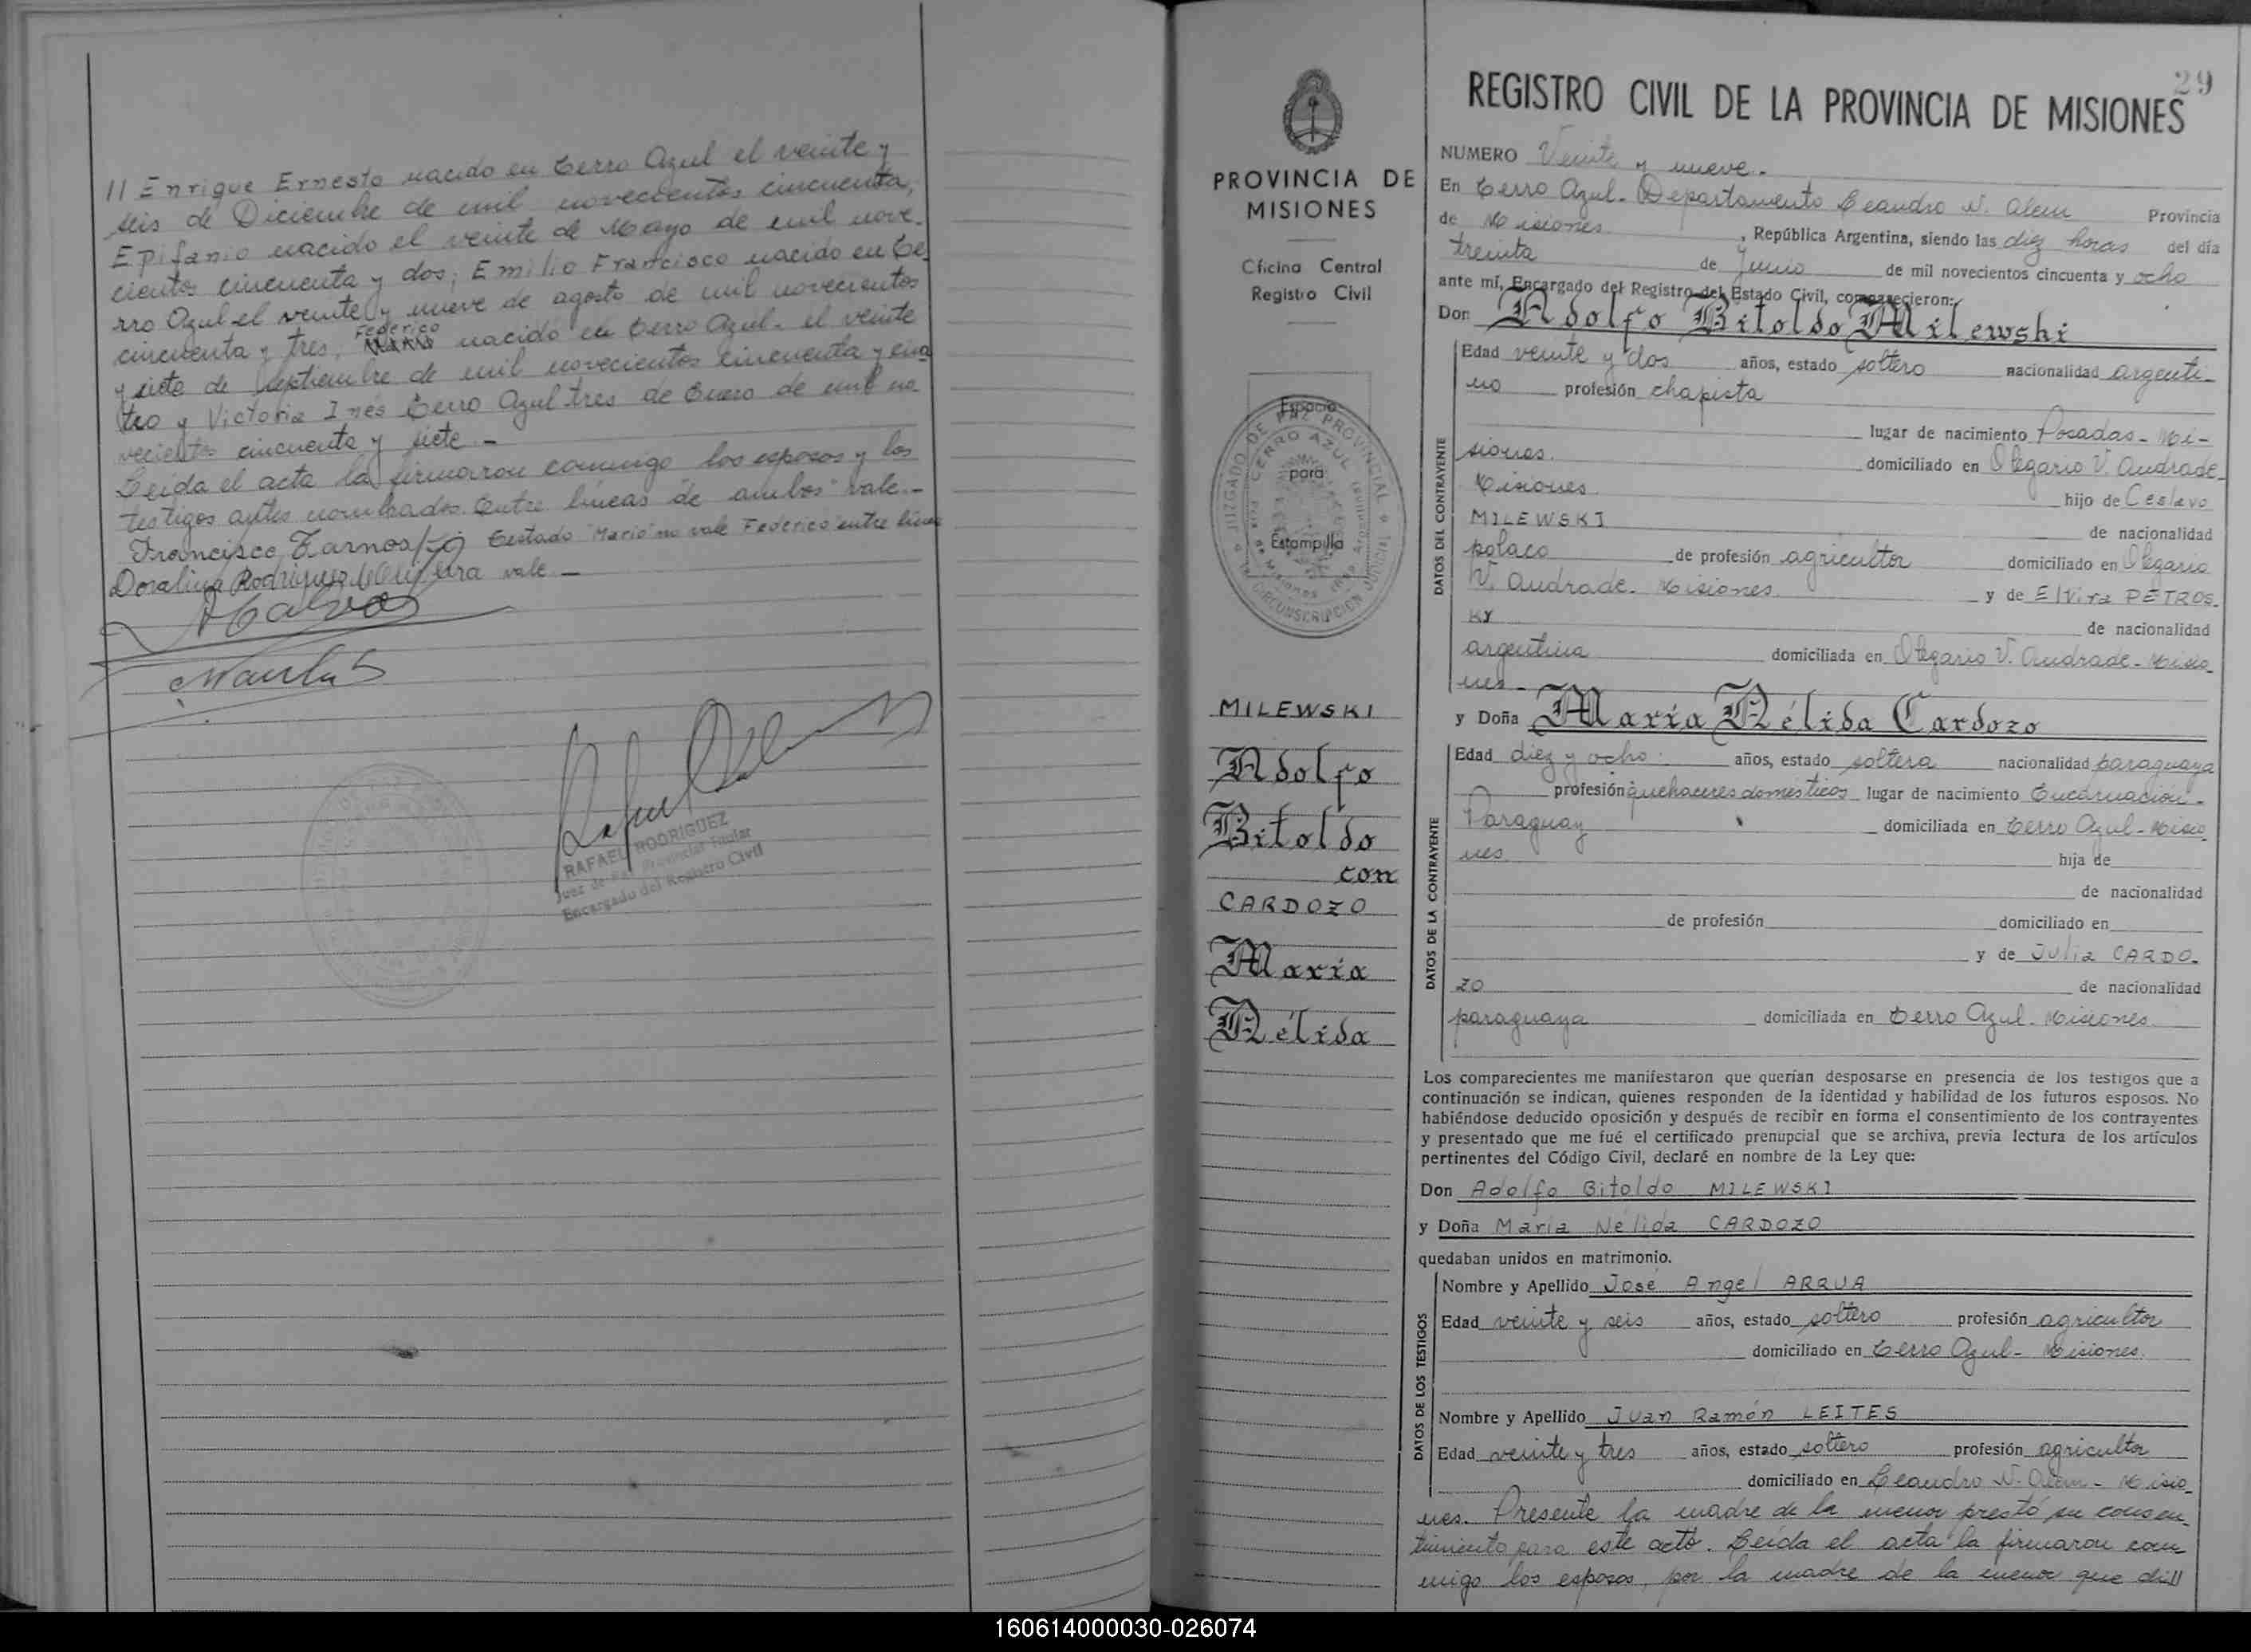 // Enrique Ernesto nacido en Cerro Azul el veinte y
seis de Diciembre de mil novecientos cincuenta,
Epifanio nacido el veinte de Mayo de mil nove-
cientos cincuenta y dos; Emilio Francisco nacido en Ce-
rro Azul el veinte y nueve de agosto de mil novecientos
Federico
cincuenta y tres, Mario nacido en Cerro Azul - el veinte
y siete de Septiembre de mil novecientos cincuenta y cua
tro y Victoria Inés Cerro Azul tres de Enero de mil no
vecientos cincuenta y siete.-
Leída el acta la firmaron conmigo los esposos y los
testigos antes nombrados. Entre líneas "de ambos" vale.-
Francisco Testado "Mario" no vale Federico entre líneas
Doralina Rodriguez vale.-
RAFAEL RODRIGUEZ
Juez de Paz Provincial Titular
Encargado del Registro Civil
PROVINCIA DE
MISIONES
Oficina Central
Registro Civil
Espacio
para
Estampilla
JUZGADO DE PAZ PROVINCIAL
CERRO AZUL
CIRCUNSCRIPCION JUDICIAL
MILEWSKI
Adolfo
Bitoldo
con
CARDOZO
María
Nélida
29
REGISTRO CIVIL DE LA PROVINCIA DE MISIONES
NUMERO Veinte y nueve.-
En Cerro Azul - Departamento Leandro N. Alem Provincia
de Misiones, República Argentina, siendo las diez horas del día
treinta de Junio de mil novecientos cincuenta y ocho
ante mí, Encargado del Registro del Estado Civil, comparecieron:
Don Adolfo Bitoldo Milewski
DATOS DEL CONTRAYENTE
Edad veinte y dos años, estado soltero nacionalidad argenti-
no profesión chapista
lugar de nacimiento Posadas - Mi-
siones. domiciliado en Olegario V. Andrade-
Misiones hijo de Ceslavo
MILEWSKI de nacionalidad
polaco de profesión agricultor domiciliado en Olegario
V. Andrade - Misiones y de Elvira PETROS-
KY de nacionalidad
argentina domiciliada en Olegario V. Andrade - Misio-
nes -
y Doña María Nélida Cardozo
DATOS DE LA CONTRAYENTE
Edad diez y ocho años, estado soltera nacionalidad paraguaya
profesión quehaceres domésticos lugar de nacimiento Encarnación -
Paraguay domiciliada en Cerro Azul - Misio-
nes. hija de
de nacionalidad
de profesión domiciliado en
y de Julia CARDO-
ZO de nacionalidad
paraguaya domiciliada en Cerro Azul - Misiones
Los comparecientes me manifestaron que querían desposarse en presencia de los testigos que a
continuación se indican, quienes responden de la identidad y habilidad de los futuros esposos. No
habiéndose deducido oposición y después de recibir en forma el consentimiento de los contrayentes
y presentado que me fué el certificado prenupcial que se archiva, previa lectura de los artículos
pertinentes del Código Civil, declaré en nombre de la Ley que:
Don Adolfo Bitoldo MILEWSKI
y Doña María Nélida CARDOZO
quedaban unidos en matrimonio.
DATOS DE LOS TESTIGOS
Nombre y Apellido José Angel ARRUA
Edad veinte y seis años, estado soltero profesión agricultor
domiciliado en Cerro Azul - Misiones.
Nombre y Apellido Juan Ramón LEITES
Edad veinte y tres años, estado soltero profesión agricultor
domiciliado en Leandro N. Alem - Misio-
nes. Presente la madre de la menor prestó su consen-
timiento para este acto. Leída el acta la firmaron con-
migo los esposos, por la madre de la menor que dice//
160614000030-026074